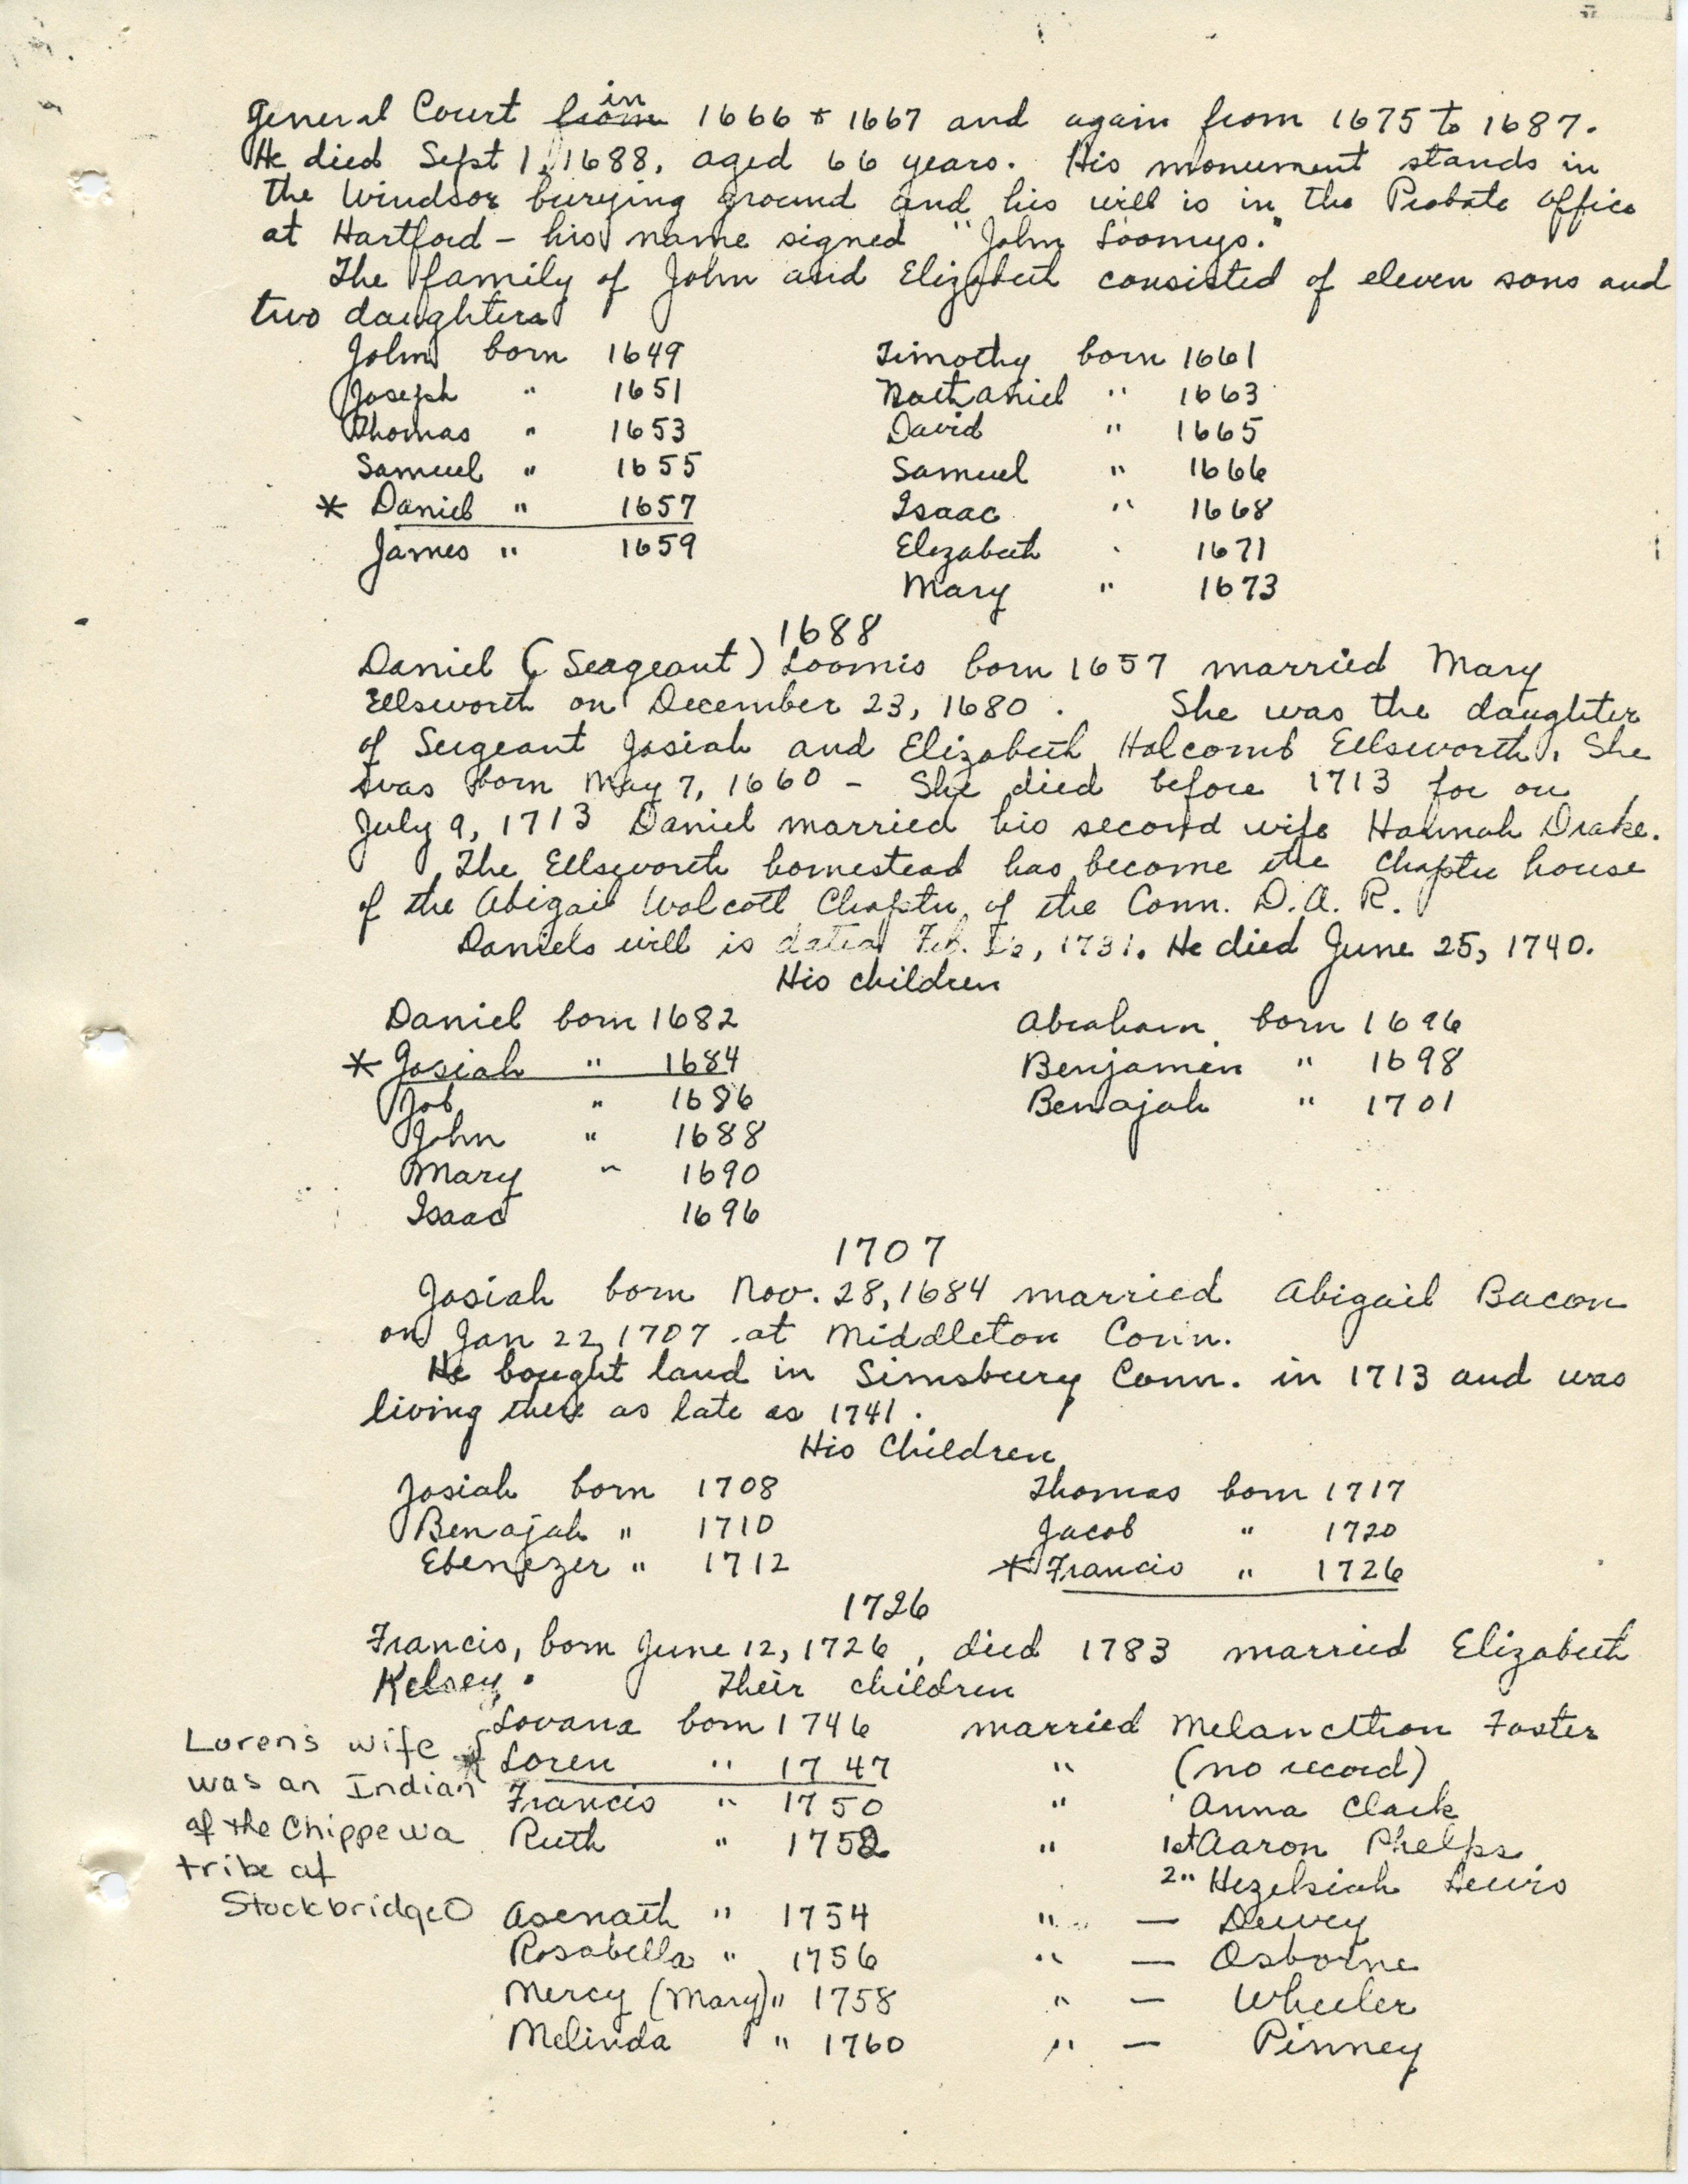 General Court from in 1666 + 1667 and again from 1675 to 1687.
He died Sept 1, 1688, aged 66 years. His monument stands in
the Windsor burying ground and his will is in the Probate office
at Hartford - his name signed "John Loomys."
The family of John and Elizabeth consisted of eleven sons and
two daughters
John born 1649 Timothy born 1661
Joseph " 1651 Nathaniel " 1663
Thomas " 1653 David " 1665
Samuel " 1655 Samuel " 1666
* Daniel " 1657 Isaac " 1668
James " 1659 Elizabeth " 1671
Mary " 1673
1688
Daniel (Seageant) Loomis born 1657 married Mary
Ellsworth on December 23, 1680. She was the daughter
of Sergeant Josiah and Elizabeth Holcomb Ellsworth. She
was born May 7, 1660 - She died before 1713 for on
July 9, 1713 Daniel married his second wife Hannah Drake.
The Ellsworth homestead has become the Chapter house
of the Abigail Wolcott Chapter of the Conn. D.A.R.
Daniels will is dated Feb. , 1731. He died June 25, 1740.
His children
Daniel born 1682 Abraham born 1696
* Josiah " 1684 Benjamin " 1698
Job " 1686 Benajah " 1701
John " 1688
Mary " 1690
Isaac 1696
1707
Josiah born Nov. 28, 1684 married Abigail Bacon
on Jan 22, 1707 at Middleton Conn.
He bought land in Simsbury Conn. in 1713 and was
living there as late as 1741.
His Children
Josiah born 1708 Thomas born 1717
Benajah " 1710 Jacob " 1720
Ebenezer " 1712 * Francis " 1726
1726
Francis, born June 12, 1726, died 1783 married Elizabeth
Kelsey. Their children
Lovana born 1746 married Melancthon Foster
* Loren " 1747 " (no record)
Francis " 1750 " Anna Clark
Ruth " 1752 " 1st Aaron Phelps
2" Hezekiah Lewis
Asenath " 1754 " - Dewey
Rosabella " 1756 " - Osborne
Mercy (Mary) " 1758 " - Wheeler
Melinda " 1760 " - Pinney
Loren's wife
was an Indian
of the Chippewa
tribe at
Stockbridge